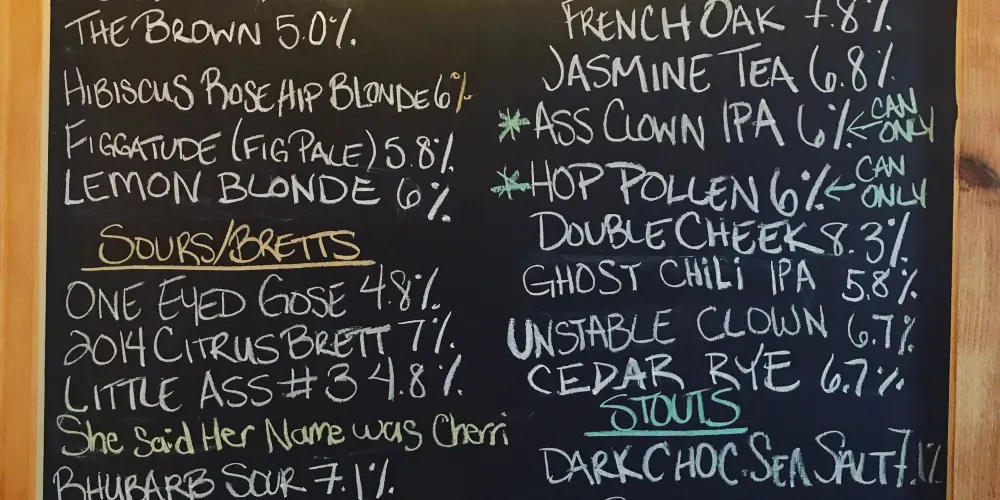 THE BROWN 5.0%
HIBISCUS ROSE HIP BLONDE 6%
FIGGATUDE (FIG PALE) 5.8%
LEMON BLONDE 6%
SOURS/BRETTS
ONE EYED GOSE 4.8%
2014 CITRUS BRETT 7%
LITTLE ASS #3 4.8%
She Said Her Name was Cherri
RHUBARB SOUR 7.1%
FRENCH OAK 7.8%
JASMINE TEA 6.8%
* ASS CLOWN IPA 6% ← CAN ONLY
* HOP POLLEN 6% ← CAN ONLY
DOUBLE CHEEK 8.3%
GHOST CHILI IPA 5.8%
UNSTABLE CLOWN 6.7%
CEDAR RYE 6.7%
STOUTS
DARK CHOC. SEA SALT 7.1%